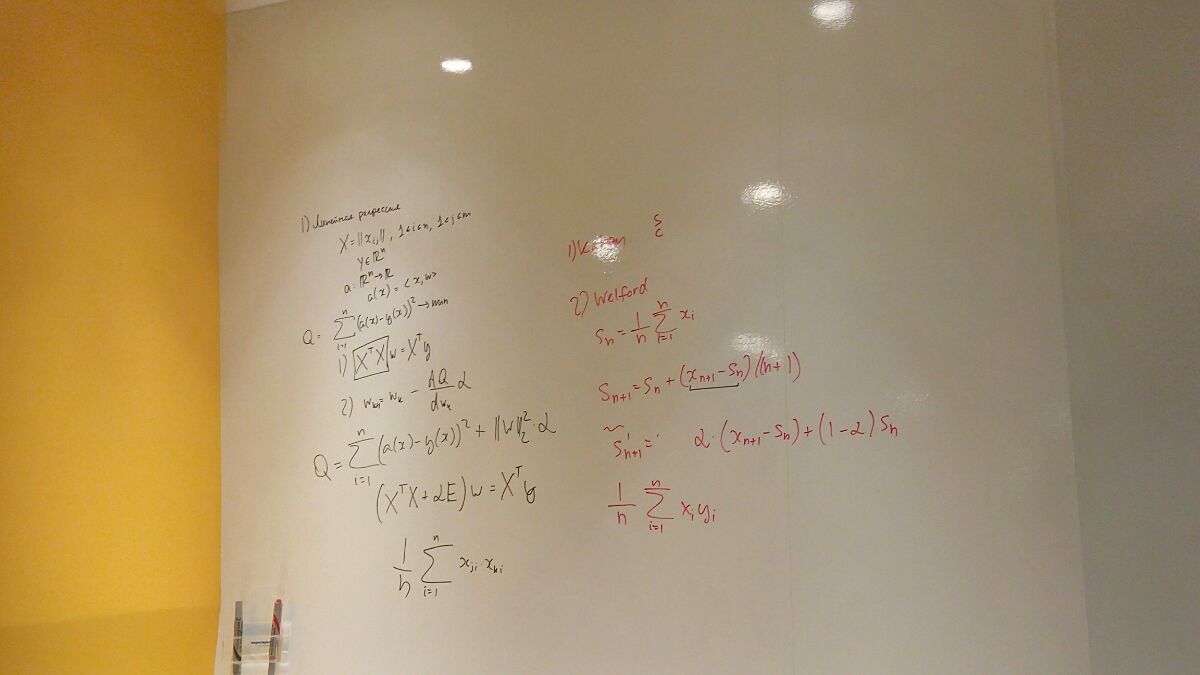 1) Линейная регрессия
X = ||x_ij||, 1≤i≤n, 1≤j≤m
y ∈ ℝ^n
a: ℝ^n → ℝ
a(x) = <x, w>
Q = ∑_{i=1}^{n} (a(x) - y(x))² → min
1) X^T X w = X^T y
2) w_{k+1} = w_k - dQ/dw_k α
Q = ∑_{i=1}^{n} (a(x) - y(x))² + ||w||_2^2 · α
(X^T X + αE) w = X^T y
1/n ∑_{i=1}^{n} x_ji · x_ki
1)
S
c
2) Welford
S_n = 1/n ∑_{i=1}^{n} x_i
S_{n+1} = S_n + (x_{n+1} - S_n)/(n+1)
S'_{n+1} = α · (x_{n+1} - S_n) + (1-α) S_n
1/n ∑_{i=1}^{n} x_i y_i